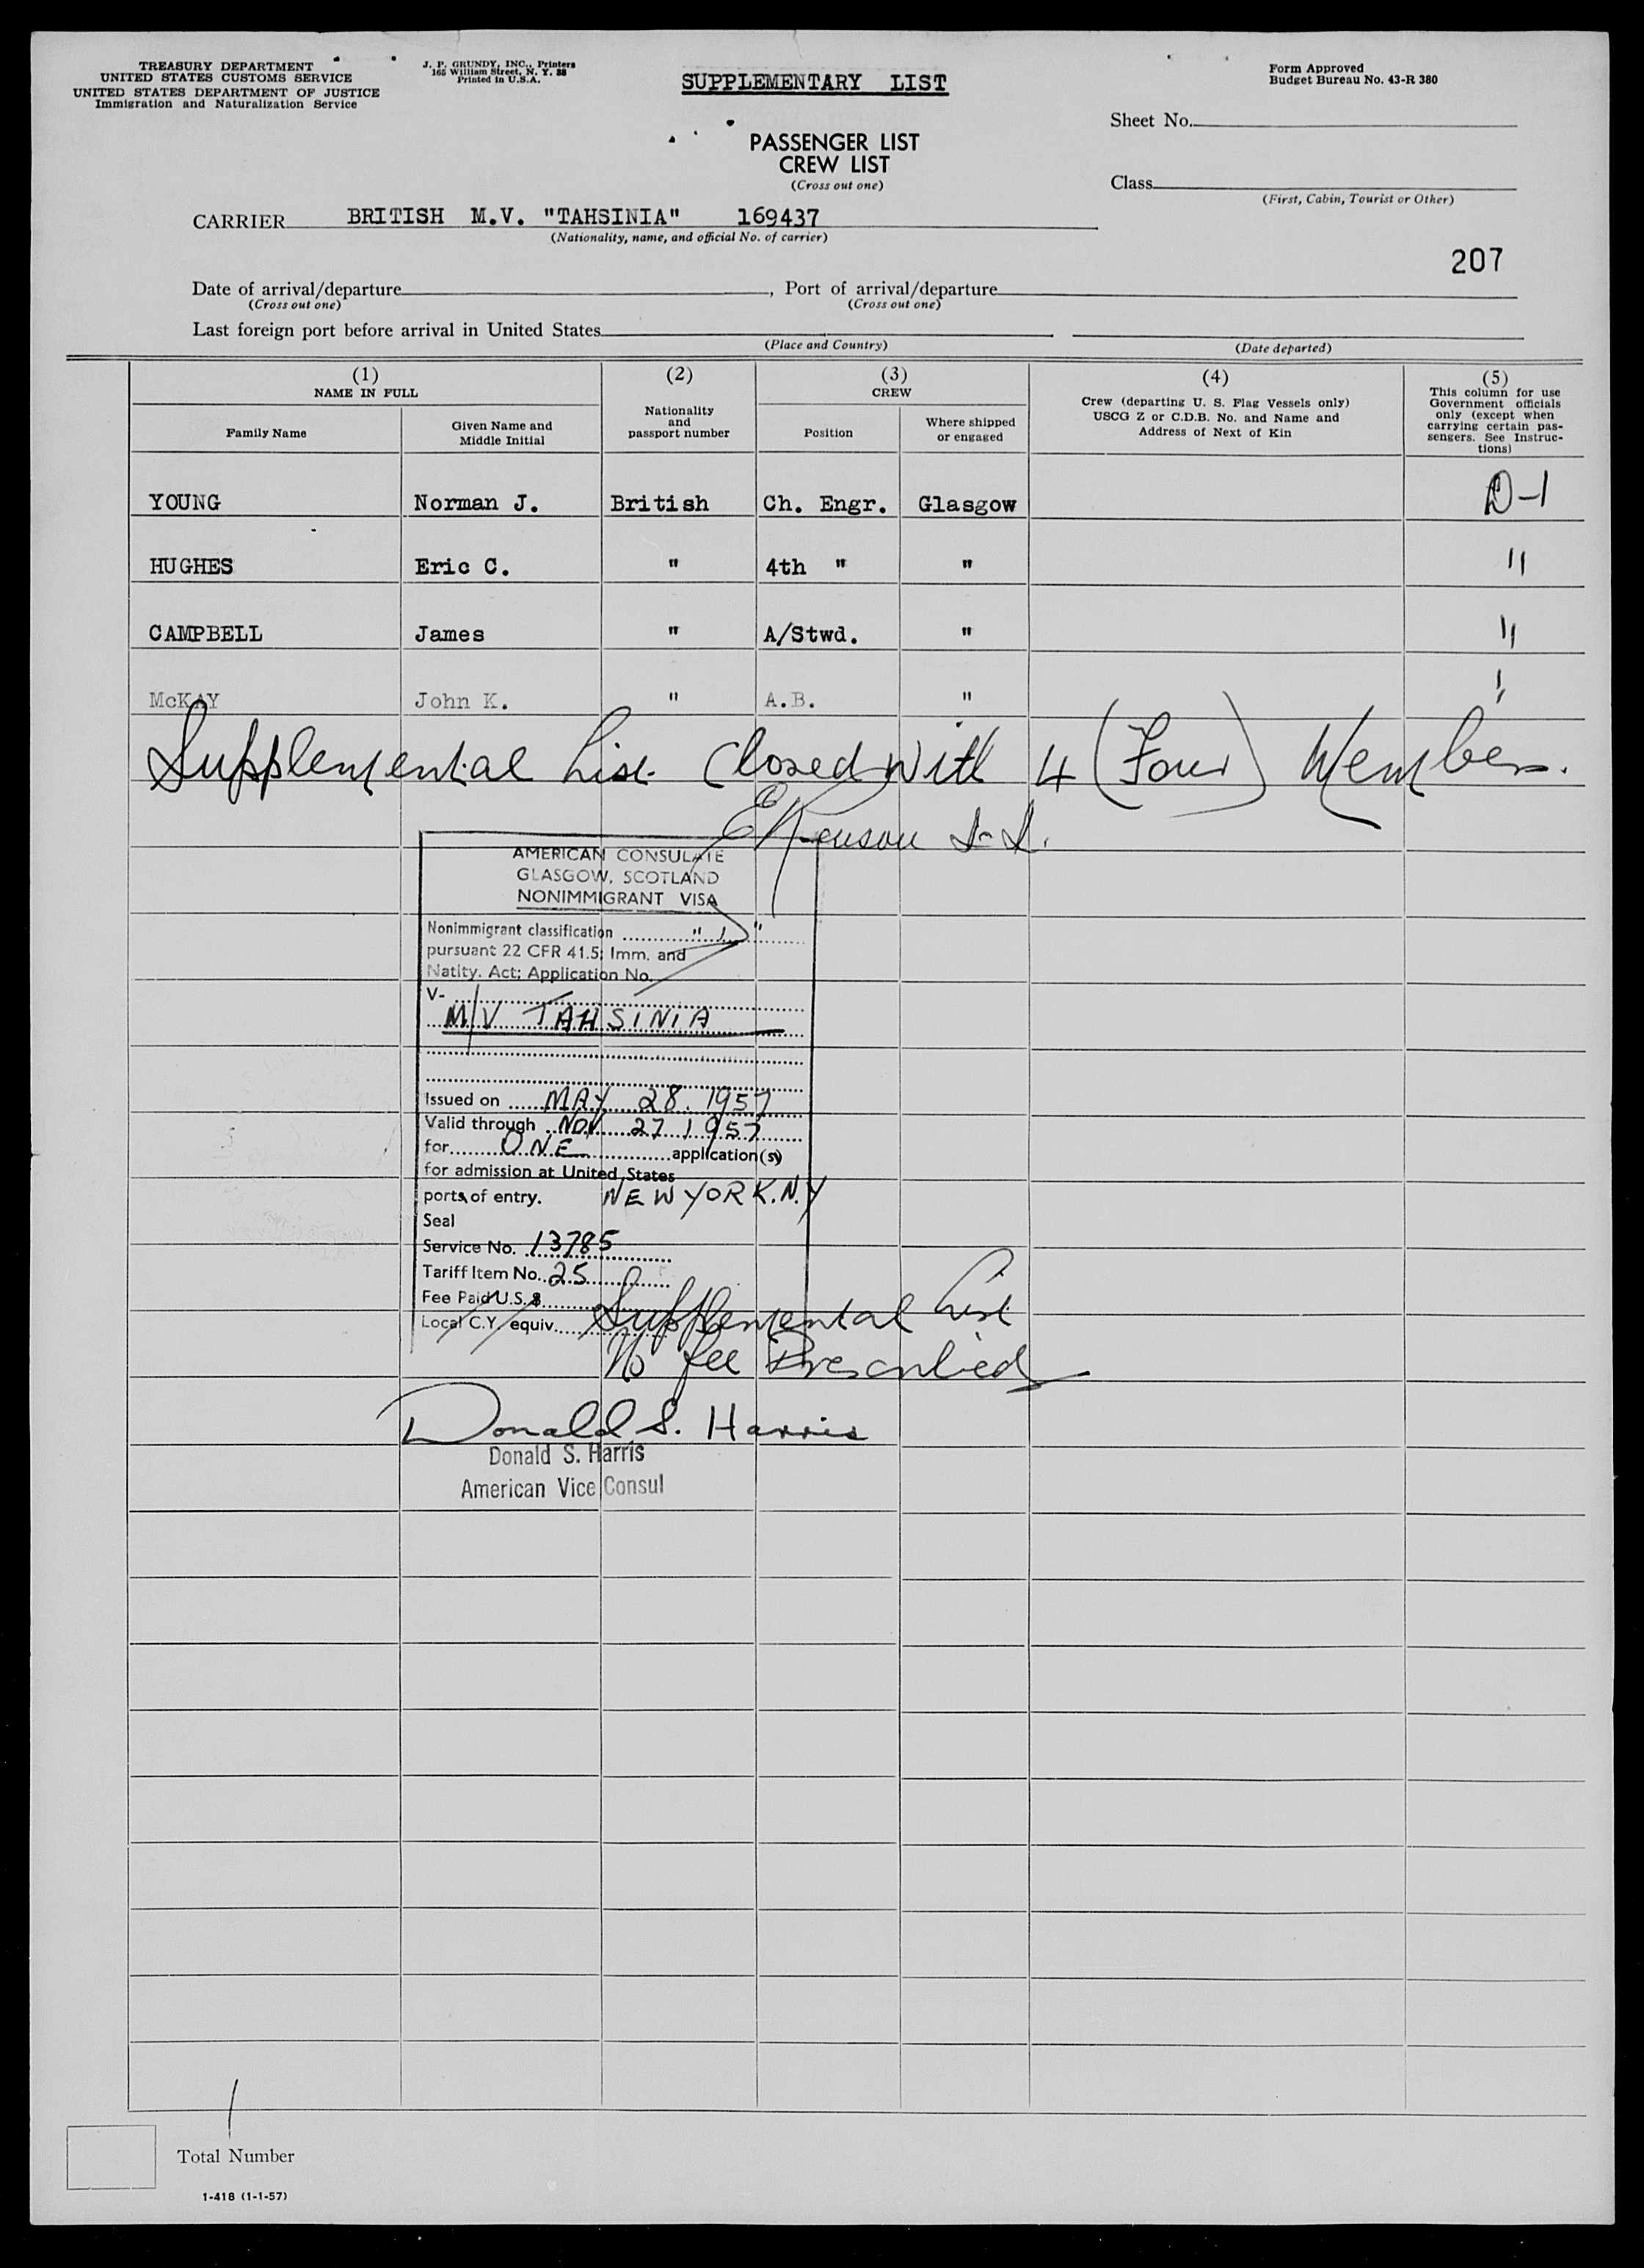 TREASURY DEPARTMENT
UNITED STATES CUSTOMS SERVICE
UNITED STATES DEPARTMENT OF JUSTICE
Immigration and Naturalization Service
J. P. GRUNDY, INC., Printers
165 William Street, N. Y. 38
Printed in U.S.A.
SUPPLEMENTARY LIST
Form Approved
Budget Bureau No. 43-R 380
PASSENGER LIST
CREW LIST
(Cross out one)
Sheet No.
Class
(First, Cabin, Tourist or Other)
CARRIER BRITISH M.V. "TAHSINIA" 169437
(Nationality, name, and official No. of carrier)
207
Date of arrival/departure , Port of arrival/departure
(Cross out one) (Cross out one)
Last foreign port before arrival in United States
(Place and Country) (Date departed)
(1) NAME IN FULL
Family Name
Given Name and Middle Initial
(2) Nationality and passport number
(3) CREW
Position
Where shipped or engaged
(4) Crew (departing U. S. Flag Vessels only) USCG Z or C.D.B. No. and Name and Address of Next of Kin
(5) This column for use Government officials only (except when carrying certain passengers. See Instructions)
YOUNG Norman J. British Ch. Engr. Glasgow D-1
HUGHES Eric C. " 4th " " "
CAMPBELL James " A/Stwd. " "
McKAY John K. " A.B. " "
Supplemental List Closed with 4 (Four) Members.
AMERICAN CONSULATE
GLASGOW, SCOTLAND
NONIMMIGRANT VISA
Nonimmigrant classification
pursuant 22 CFR 41.5; Imm. and
Natity. Act; Application No.
V-
M/V TAHSINIA
Issued on MAY 28. 1957
Valid through NOV. 27 1957
for ONE application(s)
for admission at United States
ports of entry. NEW YORK. N.Y
Seal
Service No. 13785
Tariff Item No. 25
Fee Paid U.S. $
Local C.Y. equiv. Supplemental List
No fee Prescribed
Donald S. Harris
Donald S. Harris
American Vice Consul
Total Number
1-418 (1-1-57)